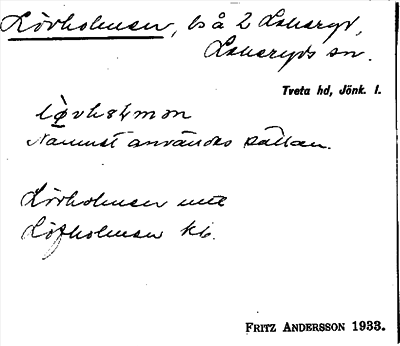 Lövholmen, ls å 2 Lekeryd,
Lekeryds sn.
Tveta hd, Jönk. l.
Namnet användes sällan.
Lövholmen mtl
Löfholmen kb.
FRITZ ANDERSSON 1933.